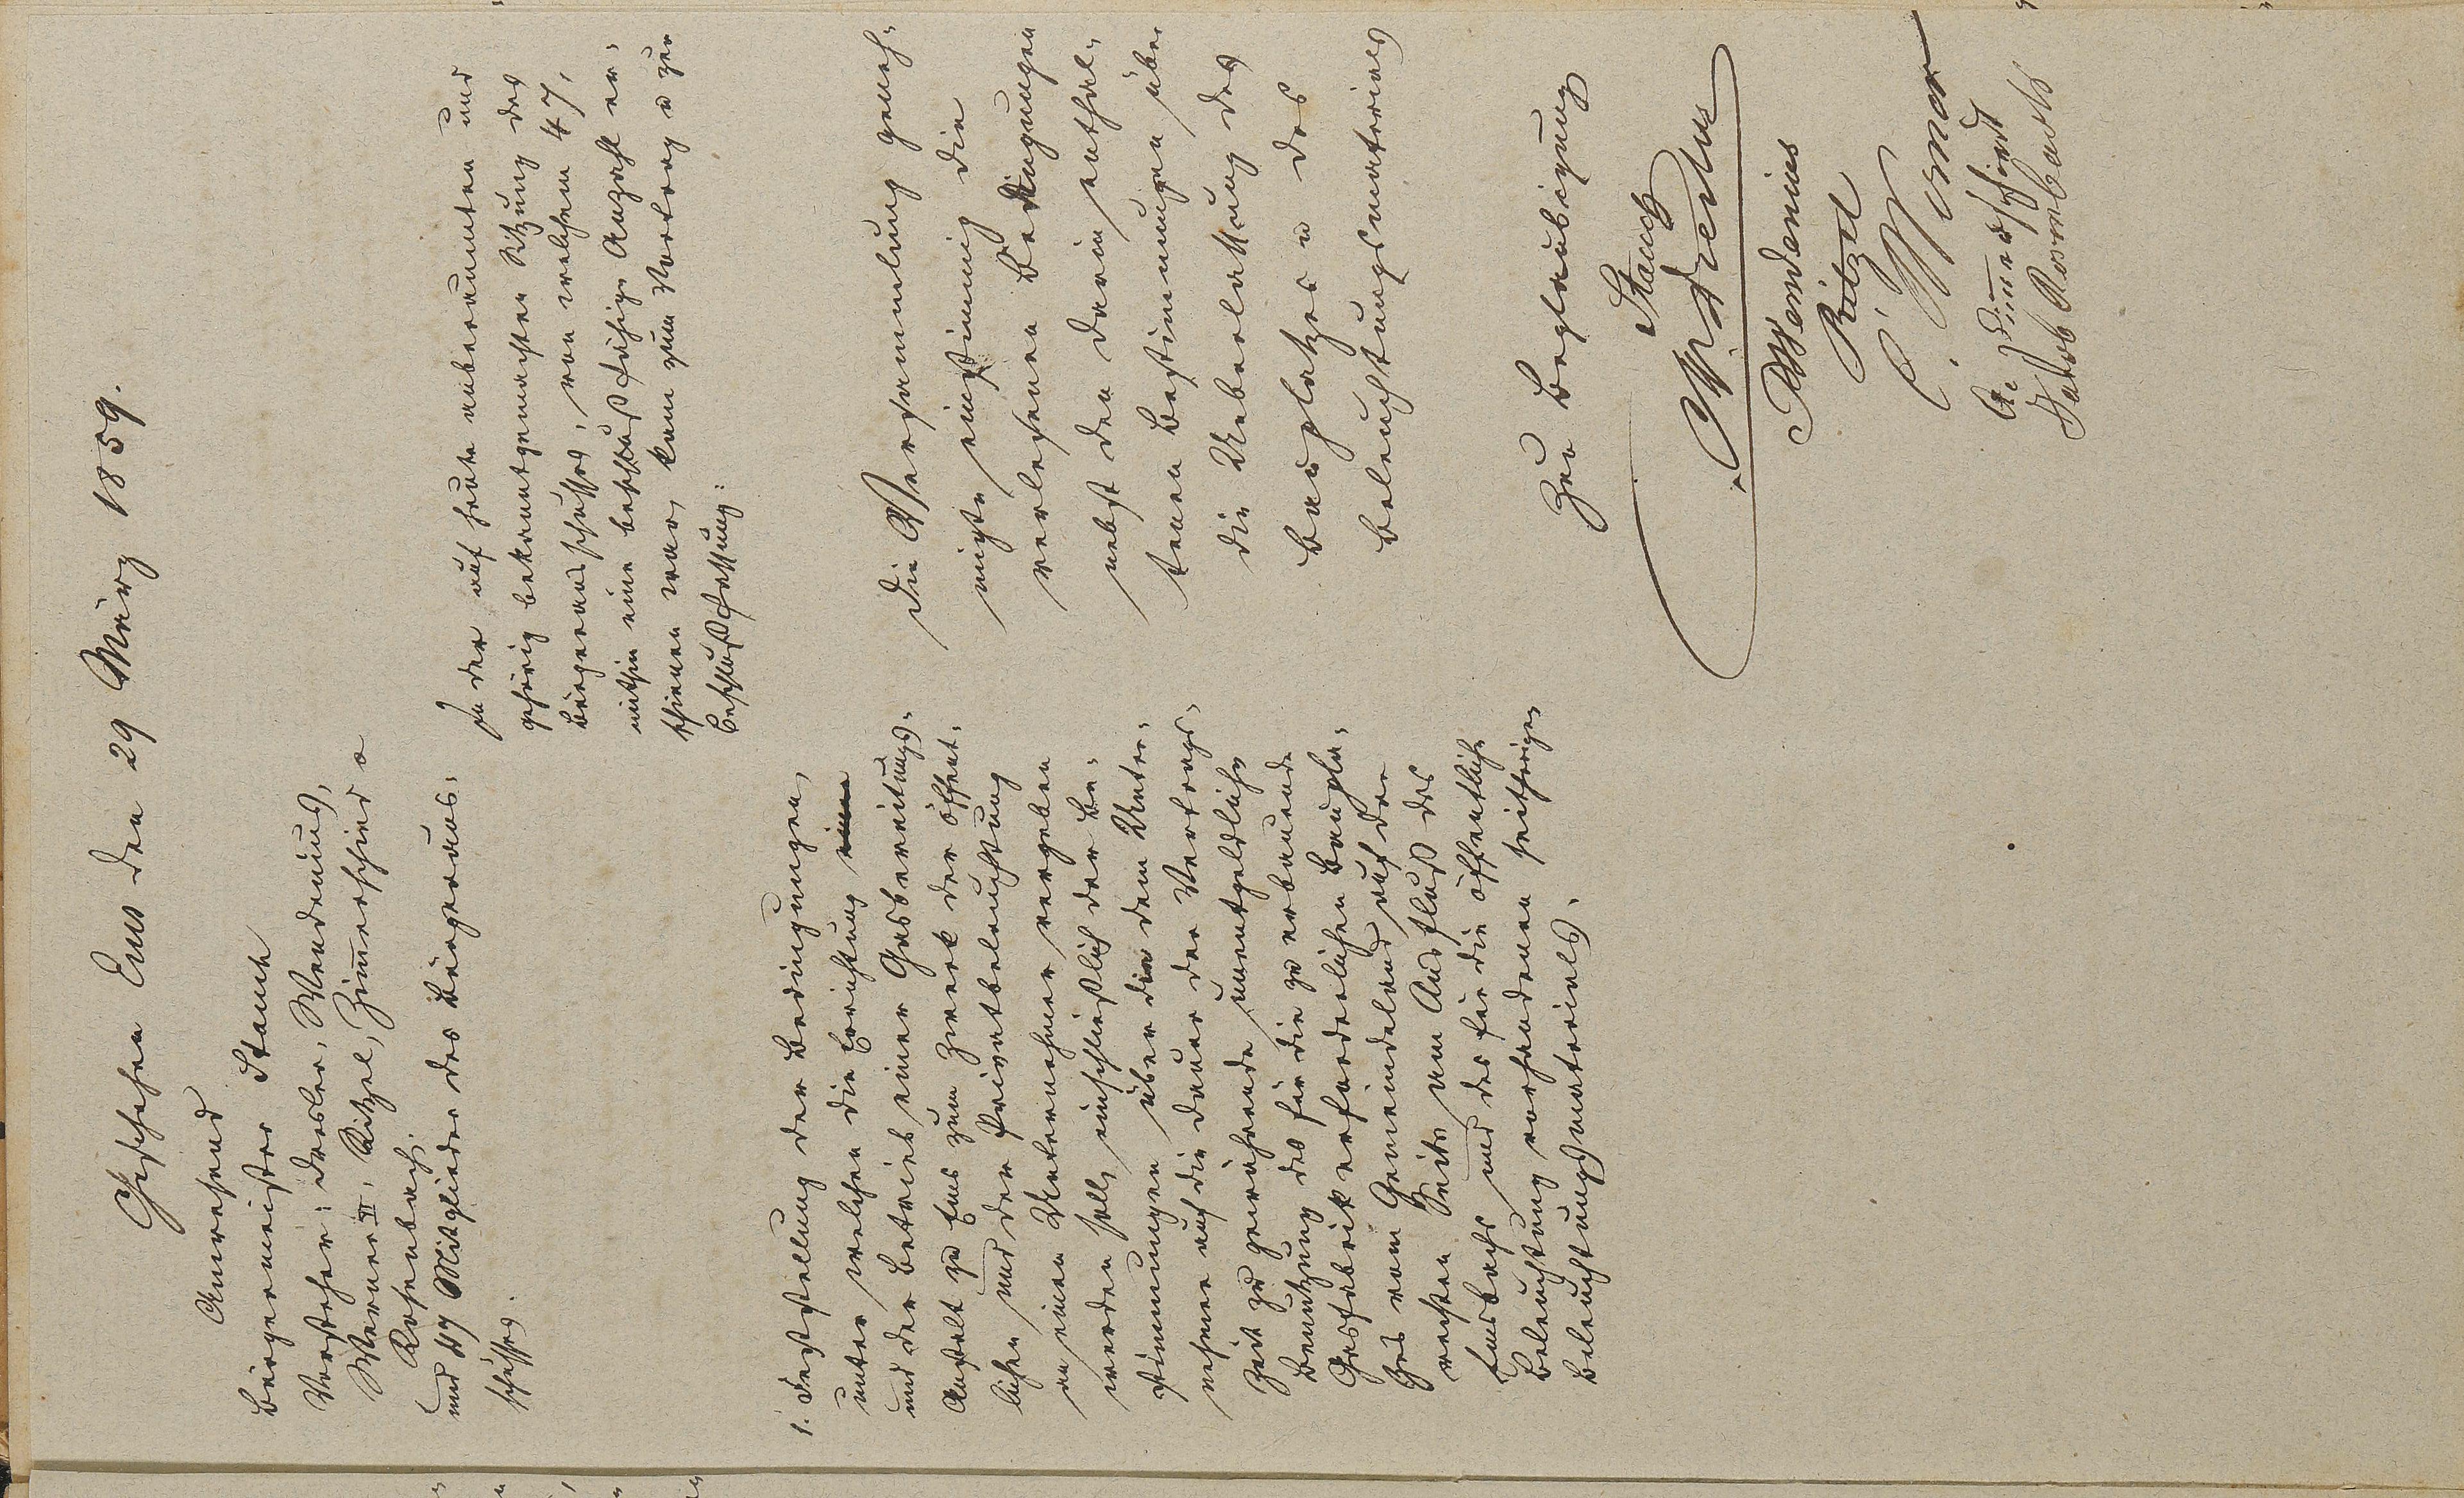 Geschehen Ems den 29 März 1859.
Anwesend
Bürgermeister Stauch
Vorsteher: Dresler, Wendenius,
Werner II, Bitzel, Zimmerschied
Rosenbach.
und 47 Mitglieder des Bürgeraus-
schusses.
In der auf heute anberaumten und
gehörig bekanntgemachten Sitzung des
Bürgerausschusses, von welchem 47,
mithin eine beschlußfähige Anzahl er-
schienen war, kam zum Vortrag u zur
Beschlußfassung:
1. Feststellung der Bedingungen,
unter welchen die Errichtung
und der Betrieb einer Gasbereitungs-
Anstalt zu Ems zum Zweck der öffent-
lichen und der Privatbeleuchtung
an einen Unternehmer vergeben
werden soll, einschließlich der Be-
stimmungen über die dem Unter-
nehmer auf die Dauer der Vertrags-
Zeit zu gewährende unentgeldliche
Benutzung des für die zu erbauende
Gasfabrik erforderlichen Baupla-
tzes vom Gemeindeland auf der
rechten Seite am Ausfluß des
Emsbachs und des für die öffentliche
Beleuchtung vorhandenen seitherigen
Beleuchtungsmaterials.
Die Versammlung geneh-
migte einstimmig die
verlesenen Bedingungen
nebst den darin enthal-
tenen Bestimmungen über
die Ueberlassung des
Bauplatzes u des
Beleuchtungsmaterials
Zur Beglaubigung
Stauch
Wendenius
Bitzel
C. Werner
Zimmerschied
Jakob Rosenbach